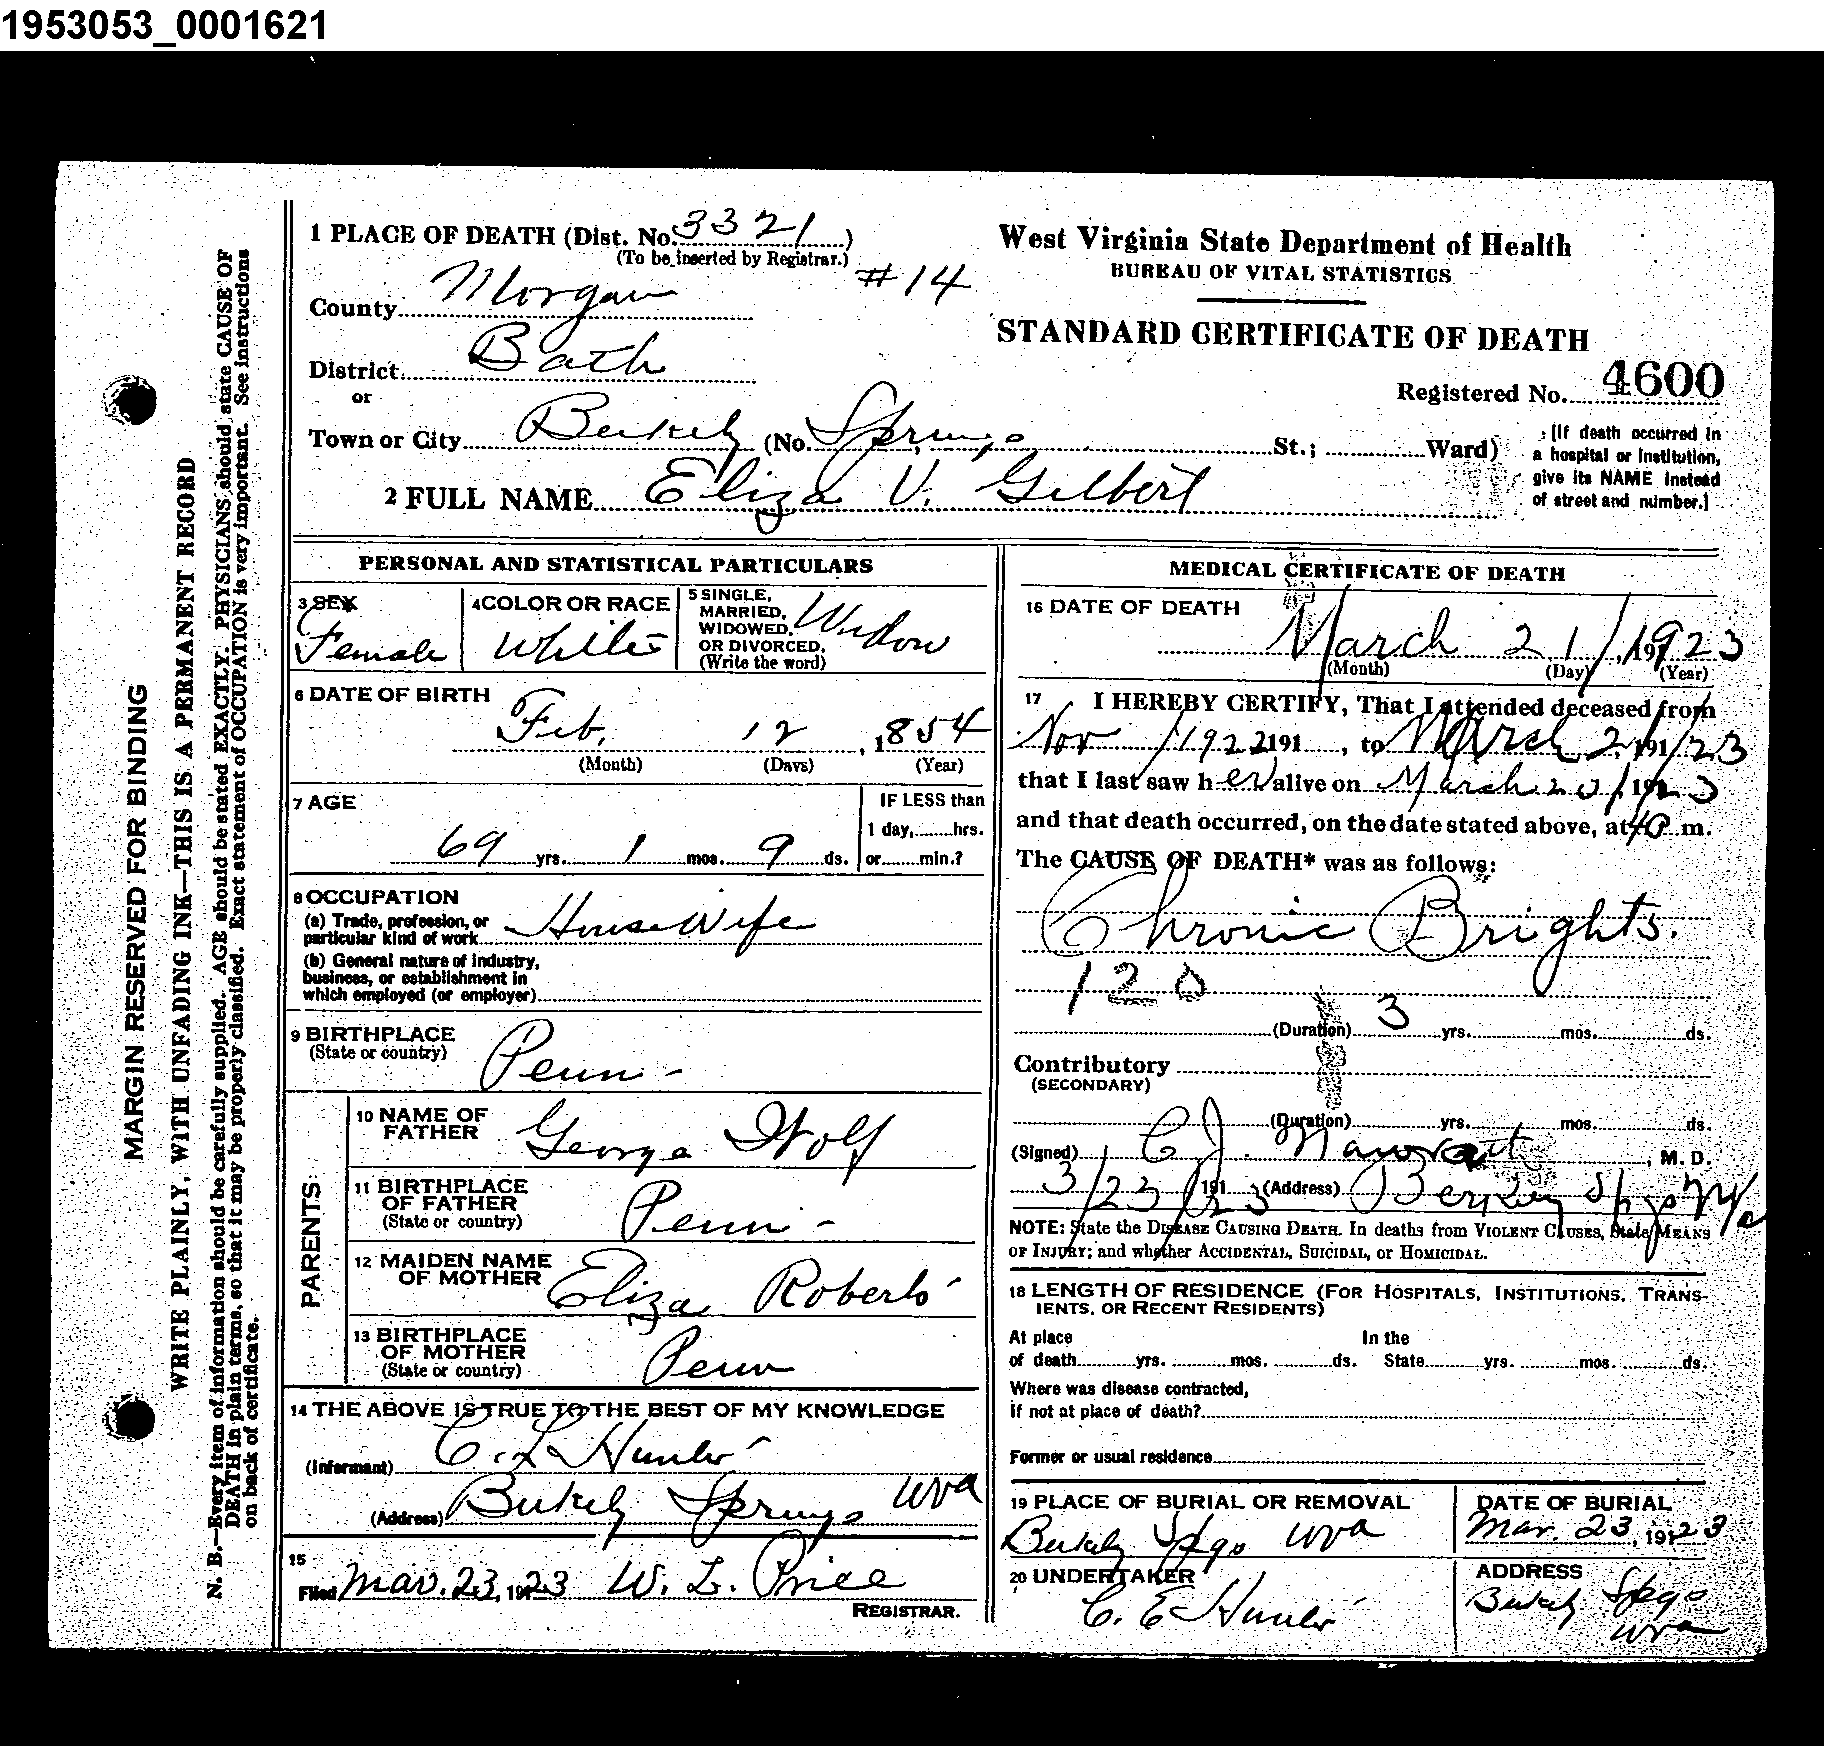 1953053_0001621
MARGIN RESERVED FOR BINDING
WRITE PLAINLY, WITH UNFADING INK—THIS IS A PERMANENT RECORD
N. B.—Every item of information should be carefully supplied. AGE should be stated EXACTLY. PHYSICIANS should state CAUSE OF
DEATH in plain terms, so that it may be properly classified. Exact statement of OCCUPATION is very important. See instructions
on back of certificate.
1 PLACE OF DEATH (Dist. No. 3321)
(To be inserted by Registrar.)
#14
County Morgan
District Bath
or
Town or City Berkely (No. Springs St.; Ward)
2 FULL NAME Eliza V. Gilbert
West Virginia State Department of Health
BUREAU OF VITAL STATISTICS
STANDARD CERTIFICATE OF DEATH
Registered No. 4600
[If death occurred in
a hospital or institution,
give its NAME instead
of street and number.]
PERSONAL AND STATISTICAL PARTICULARS
3 SEX
Female
4 COLOR OR RACE
White
5 SINGLE,
MARRIED,
WIDOWED,
OR DIVORCED.
(Write the word)
Widow
6 DATE OF BIRTH
Feb. 12, 1854
(Month) (Days) (Year)
7 AGE
69 yrs. 1 mos. 9 ds.
IF LESS than
1 day, hrs.
or min.?
8 OCCUPATION
(a) Trade, profession, or
particular kind of work HouseWife
(b) General nature of industry,
business, or establishment in
which employed (or employer)
9 BIRTHPLACE
(State or country)
Penn-
PARENTS
10 NAME OF
FATHER
George Wolf
11 BIRTHPLACE
OF FATHER
(State or country)
Penn-
12 MAIDEN NAME
OF MOTHER
Eliza Roberts
13 BIRTHPLACE
OF MOTHER
(State or country)
Penn
14 THE ABOVE IS TRUE TO THE BEST OF MY KNOWLEDGE
(Informant) Hunter
(Address) Berkely Springs Wva
15
Filed Mar. 23, 1923 W. L. Price
REGISTRAR.
MEDICAL CERTIFICATE OF DEATH
16 DATE OF DEATH
March 21/, 1923
(Month) (Day) (Year)
17 I HEREBY CERTIFY, That I attended deceased from
Nov /1922 191 , to March 2, 191/23
that I last saw her alive on March 20/, 1923
and that death occurred, on the date stated above, at m.
The CAUSE OF DEATH* was as follows:
Chronic Brights.
120
(Duration) 3 yrs. mos. ds.
Contributory
(SECONDARY)
(Duration) yrs. mos. ds.
(Signed) C J. , M. D.
3/23/23 191 (Address) Berkeley Spgs W Va
NOTE: State the DISEASE CAUSING DEATH. In deaths from VIOLENT CAUSES, State MEANS
OF INJURY; and whether ACCIDENTAL, SUICIDAL, or HOMICIDAL.
18 LENGTH OF RESIDENCE (FOR HOSPITALS, INSTITUTIONS, TRANS-
IENTS, OR RECENT RESIDENTS)
At place In the
of death yrs. mos. ds. State yrs. mos. ds.
Where was disease contracted,
if not at place of death?
Former or usual residence
19 PLACE OF BURIAL OR REMOVAL
Berkely Spgs Wva
DATE OF BURIAL
Mar. 23, 1923
20 UNDERTAKER
C. E Hunter
ADDRESS
Berkely Spgs
Wva